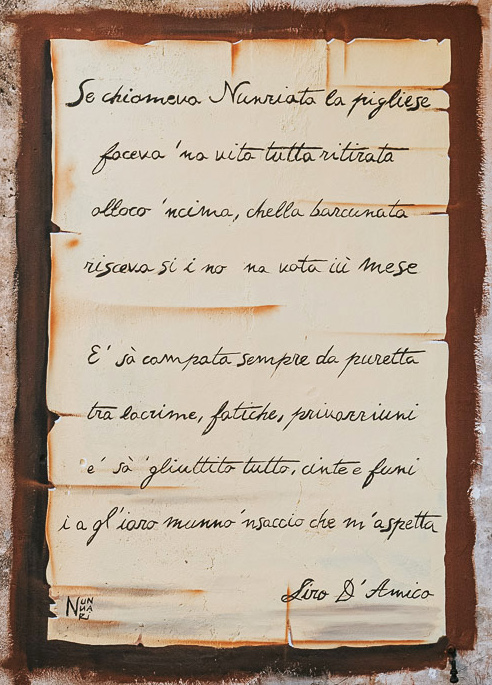 Se chiameva Nunziata la pigliese
faceva 'na vita tutta ritirata
alloco 'ncima, chella barcunata
risceva si i no na vota iù mese
E' sà campata sempre da puretta
tra lacrime, fatiche, privazziuni
e' sà 'gliuttito tutto, cinte e funi
i a gl'iaro munno 'nsaccio che m'aspetta
Siro D'Amico
NUNHARJ